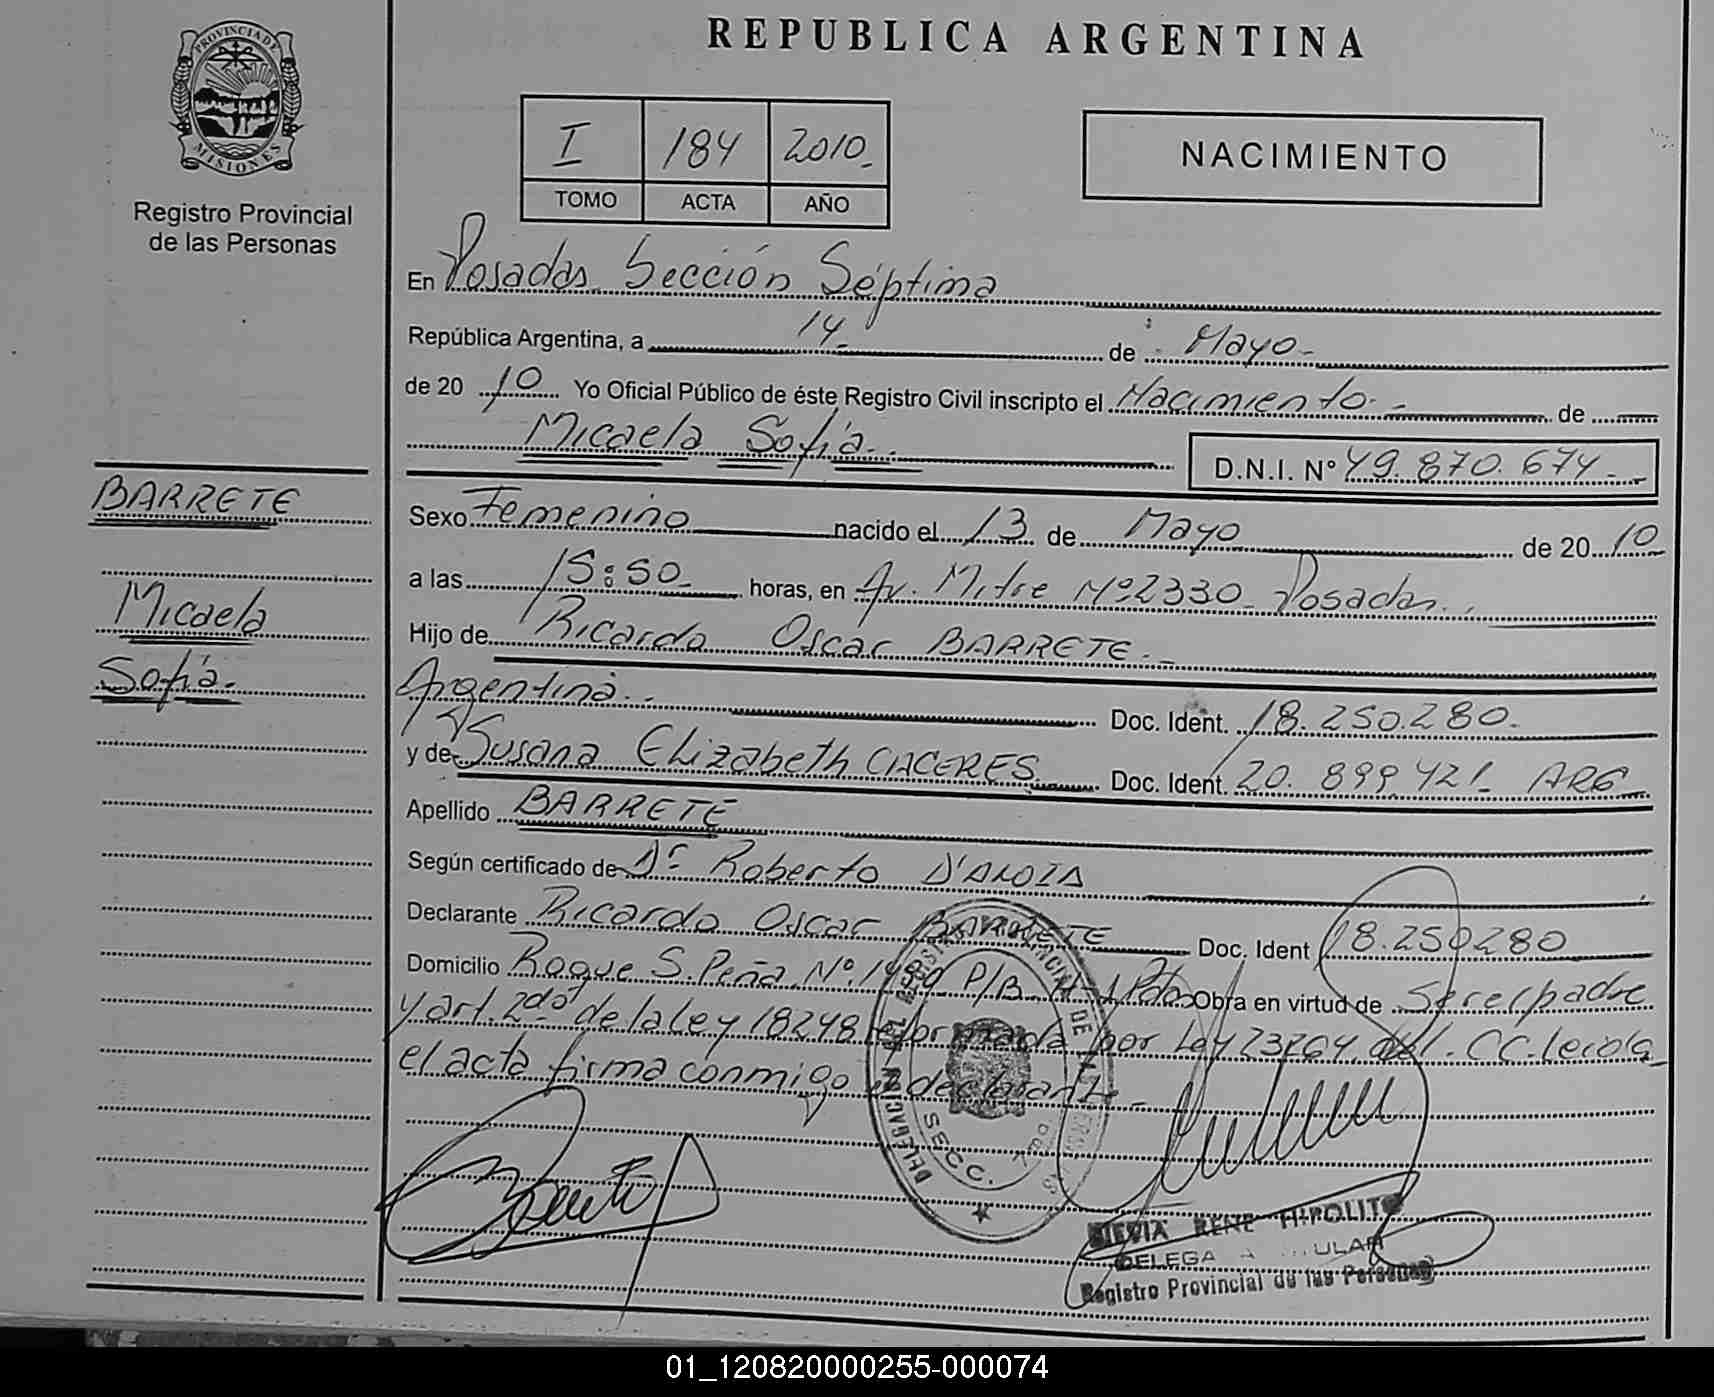 REPUBLICA ARGENTINA
PROVINCIA DE
MISIONES
Registro Provincial
de las Personas
I 184 2010
TOMO ACTA AÑO
NACIMIENTO
En Posadas Sección Séptima
República Argentina, a 14 de Mayo
de 2010 Yo Oficial Público de éste Registro Civil inscripto el Nacimiento de
Micaela Sofía D.N.I. N° 49.870.674
BARRETE
Micaela
Sofía
Sexo Femenino nacido el 13 de Mayo de 2010
a las 15:50 horas, en Av. Mitre Nº2330 Posadas
Hijo de Ricardo Oscar BARRETE
Argentina Doc. Ident. 18.250.280
y de Susana Elizabeth CACERES Doc. Ident. 20.899.421 ARG
Apellido BARRETE
Según certificado de Dr Roberto
Declarante Ricardo Oscar BARRETE Doc. Ident 18.250280
Domicilio Roque S. Peña Nº P/B Obra en virtud de Ser el padre
y art. 2do de la Ley 18248 reformada por Ley 23264 C.C. Leida
el acta firma conmigo el declarante
DELEGACION DEL REGISTRO PROVINCIAL DE LAS PERSONAS
SECC. 7ma
RENE HIPOLITO
Registro Provincial de las Personas
01_120820000255-000074